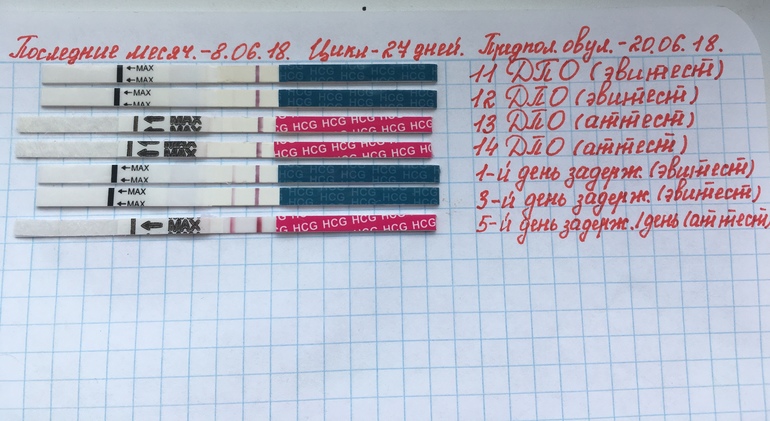 Последние месяч.-8.06.18. Цикл-27 дней. Предпол.овул.-20.06.18.
←MAX
←MAX
HCG HCG HCG HCG HCG HCG
11 ДПО (эвитест)
←MAX
←MAX
HCG HCG HCG HCG HCG HCG
12 ДПО (эвитест)
MAX
HCG HCG HCG HCG HCG
13 ДПО (аттест)
MAX
HCG HCG HCG HCG HCG
14 ДПО (аттест)
←MAX
←MAX
1-й день задерж.(эвитест)
←MAX
←MAX
3-й день задерж.(эвитест)
MAX
HCG HCG HCG HCG HCG
5-й день задерж./день(аттест)